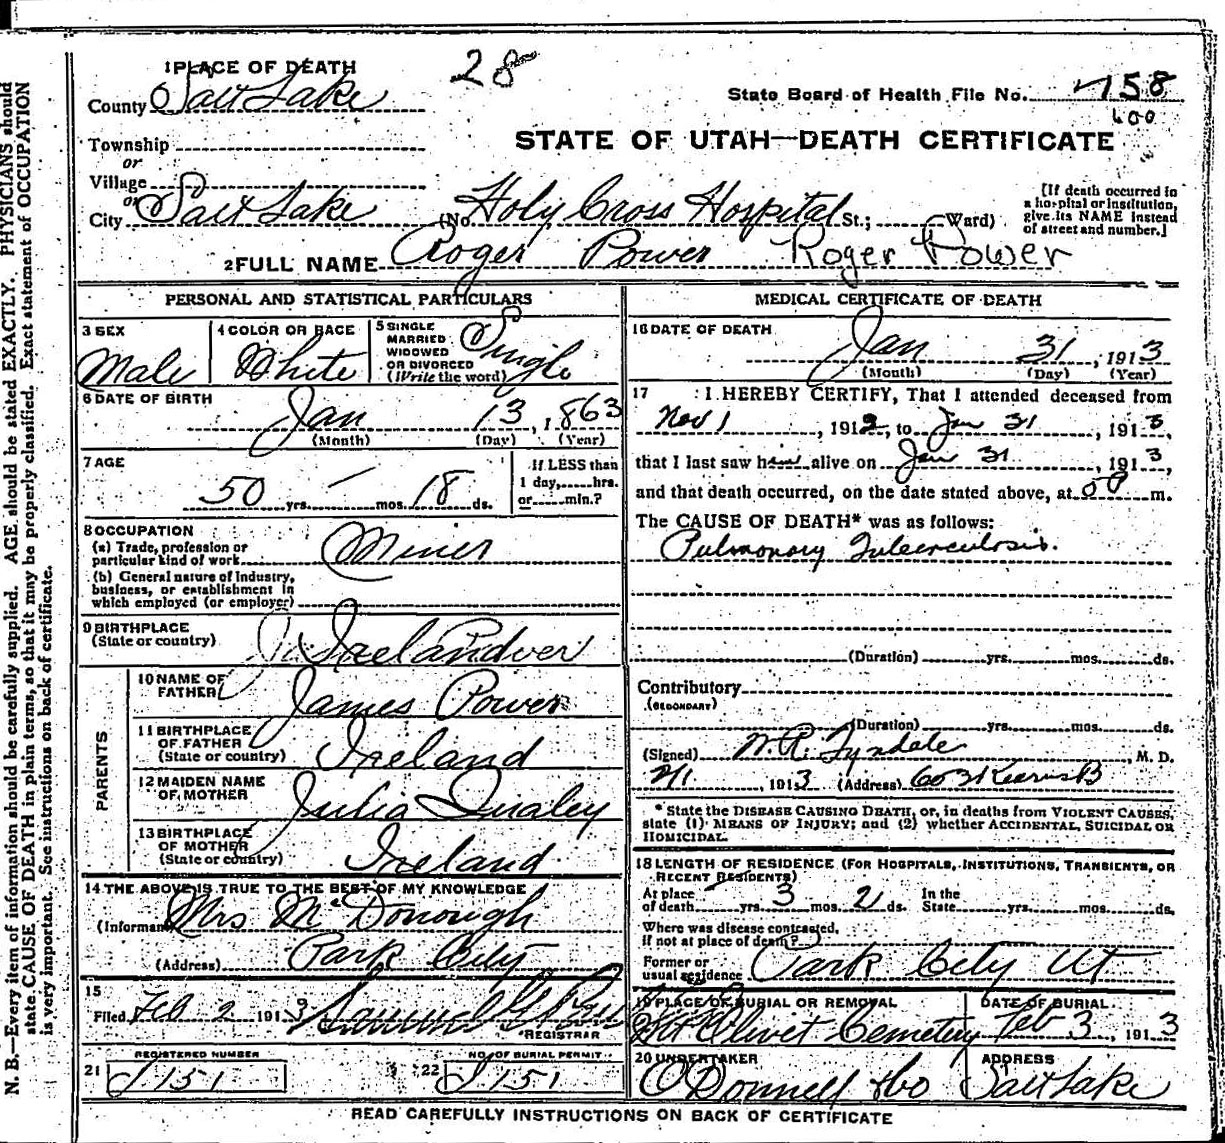 N. B.—Every item of information should be carefully supplied. AGE should be stated EXACTLY. PHYSICIANS should
state CAUSE OF DEATH in plain terms, so that it may be properly classified. Exact statement of OCCUPATION
is very important. See instructions on back of certificate.
1 PLACE OF DEATH
28
County Salt Lake
State Board of Health File No. 758
600
Township
STATE OF UTAH—DEATH CERTIFICATE
or
Village
or
City Salt Lake (No. Holy Cross Hospital St.; Ward)
[If death occurred in
a hospital or institution,
give its NAME instead
of street and number.]
2 FULL NAME Roger Power Roger Power
PERSONAL AND STATISTICAL PARTICULARS
3 SEX
Male
4 COLOR OR RACE
White
5 SINGLE
MARRIED
WIDOWED
OR DIVORCED
(Write the word)
Single
6 DATE OF BIRTH
Jan 13, 1863
(Month) (Day) (Year)
7 AGE
50 yrs. — mos. 18 ds.
If LESS than
1 day, hrs.
or min.?
8 OCCUPATION
(a) Trade, profession or
particular kind of work
Miner
(b) General nature of industry,
business, or establishment in
which employed (or employer)
9 BIRTHPLACE
(State or country)
Ireland
PARENTS
10 NAME OF
FATHER
James Power
11 BIRTHPLACE
OF FATHER
(State or country)
Ireland
12 MAIDEN NAME
OF MOTHER
Julia
13 BIRTHPLACE
OF MOTHER
(State or country)
Ireland
14 THE ABOVE IS TRUE TO THE BEST OF MY KNOWLEDGE
(Informant Mrs McDonough
(Address) Park City
15
Filed Feb 2 1913
REGISTRAR
REGISTERED NUMBER
21 J151
NO. OF BURIAL PERMIT
22 J151
MEDICAL CERTIFICATE OF DEATH
16 DATE OF DEATH
Jan 31, 1913
(Month) (Day) (Year)
17 I HEREBY CERTIFY, That I attended deceased from
Nov 1, 1912, to Jan 31, 1913,
that I last saw him alive on Jan 31, 1913,
and that death occurred, on the date stated above, at m.
The CAUSE OF DEATH* was as follows:
Pulmonary Tuberculosis.
(Duration) yrs. mos. ds.
Contributory
(SECONDARY)
(Duration) yrs. mos. ds.
(Signed) W. R. Tyndale, M. D.
2/1, 1913 (Address) 603 Kearns B
*State the DISEASE CAUSING DEATH, or, in deaths from VIOLENT CAUSES,
state (1) MEANS OF INJURY; and (2) whether ACCIDENTAL, SUICIDAL OR
HOMICIDAL.
18 LENGTH OF RESIDENCE (FOR HOSPITALS, INSTITUTIONS, TRANSIENTS, OR
RECENT RESIDENTS)
At place
of death yrs. 3 mos. 21 ds.
In the
State yrs. mos. ds.
Where was disease contracted,
if not at place of death?
Former or
usual residence Park City Ut
19 PLACE OF BURIAL OR REMOVAL
Mt Olivet Cemetery
DATE OF BURIAL
Feb 3, 1913
20 UNDERTAKER
O'Donnell & Co
ADDRESS
Salt Lake
READ CAREFULLY INSTRUCTIONS ON BACK OF CERTIFICATE